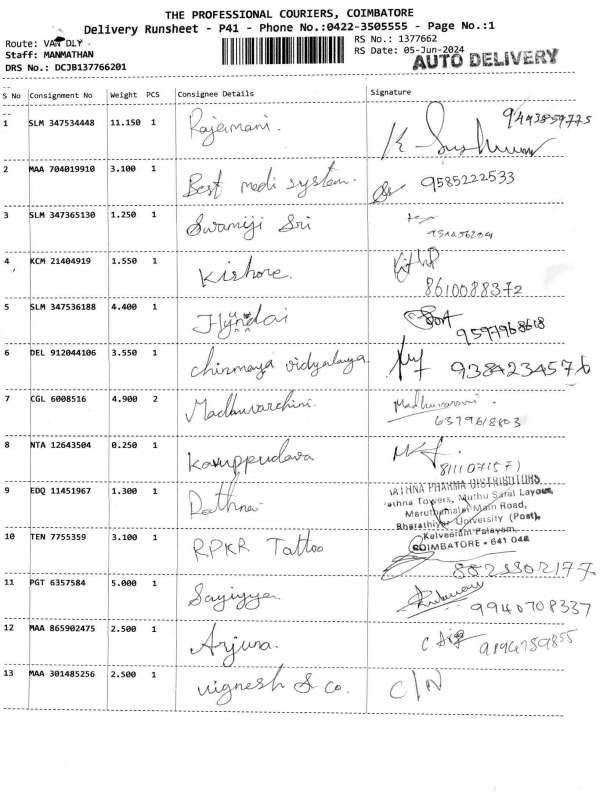 THE PROFESSIONAL COURIERS, COIMBATORE
Delivery Runsheet - P41 - Phone No.:0422-3505555 - Page No.:1
Route: VAN DLY
RS No.: 1377662
Staff: MANMATHAN
RS Date: 05-Jun-2024
AUTO DELIVERY
DRS No.: DCJB137766201
S No Consignment No Weight PCS Consignee Details Signature
1 SLM 347534448 11.150 1 Rajamani.
2 MAA 704019910 3.100 1 Best medi system. 9585222533
3 SLM 347365130 1.250 1 Swamiji Sri
4 KCM 21404919 1.550 1 Kishore. 8610088372
5 SLM 347536188 4.400 1 Hyundai 9597968618
6 DEL 912044106 3.550 1 chinmaya vidyalaya. 9384234576
7 CGL 6008516 4.900 2 Madhuvarshini.
6379618803
8 NTA 12643504 0.250 1 Karuppudava
9 EDQ 11451967 1.300 1 Rathna
RATHNA PHARMA DISTRIBUTORS
Rathna Towers, Muthu Saral Layout,
Maruthamalai Main Road,
Bharathiyar University (Post),
Kalveeram Palayam,
COIMBATORE - 641 046
10 TEN 7755359 3.100 1 RPKR Tattoo
11 PGT 6357584 5.000 1 9940708337
12 MAA 865902475 2.500 1 Arjuna.
13 MAA 301485256 2.500 1 vignesh & co. C/N